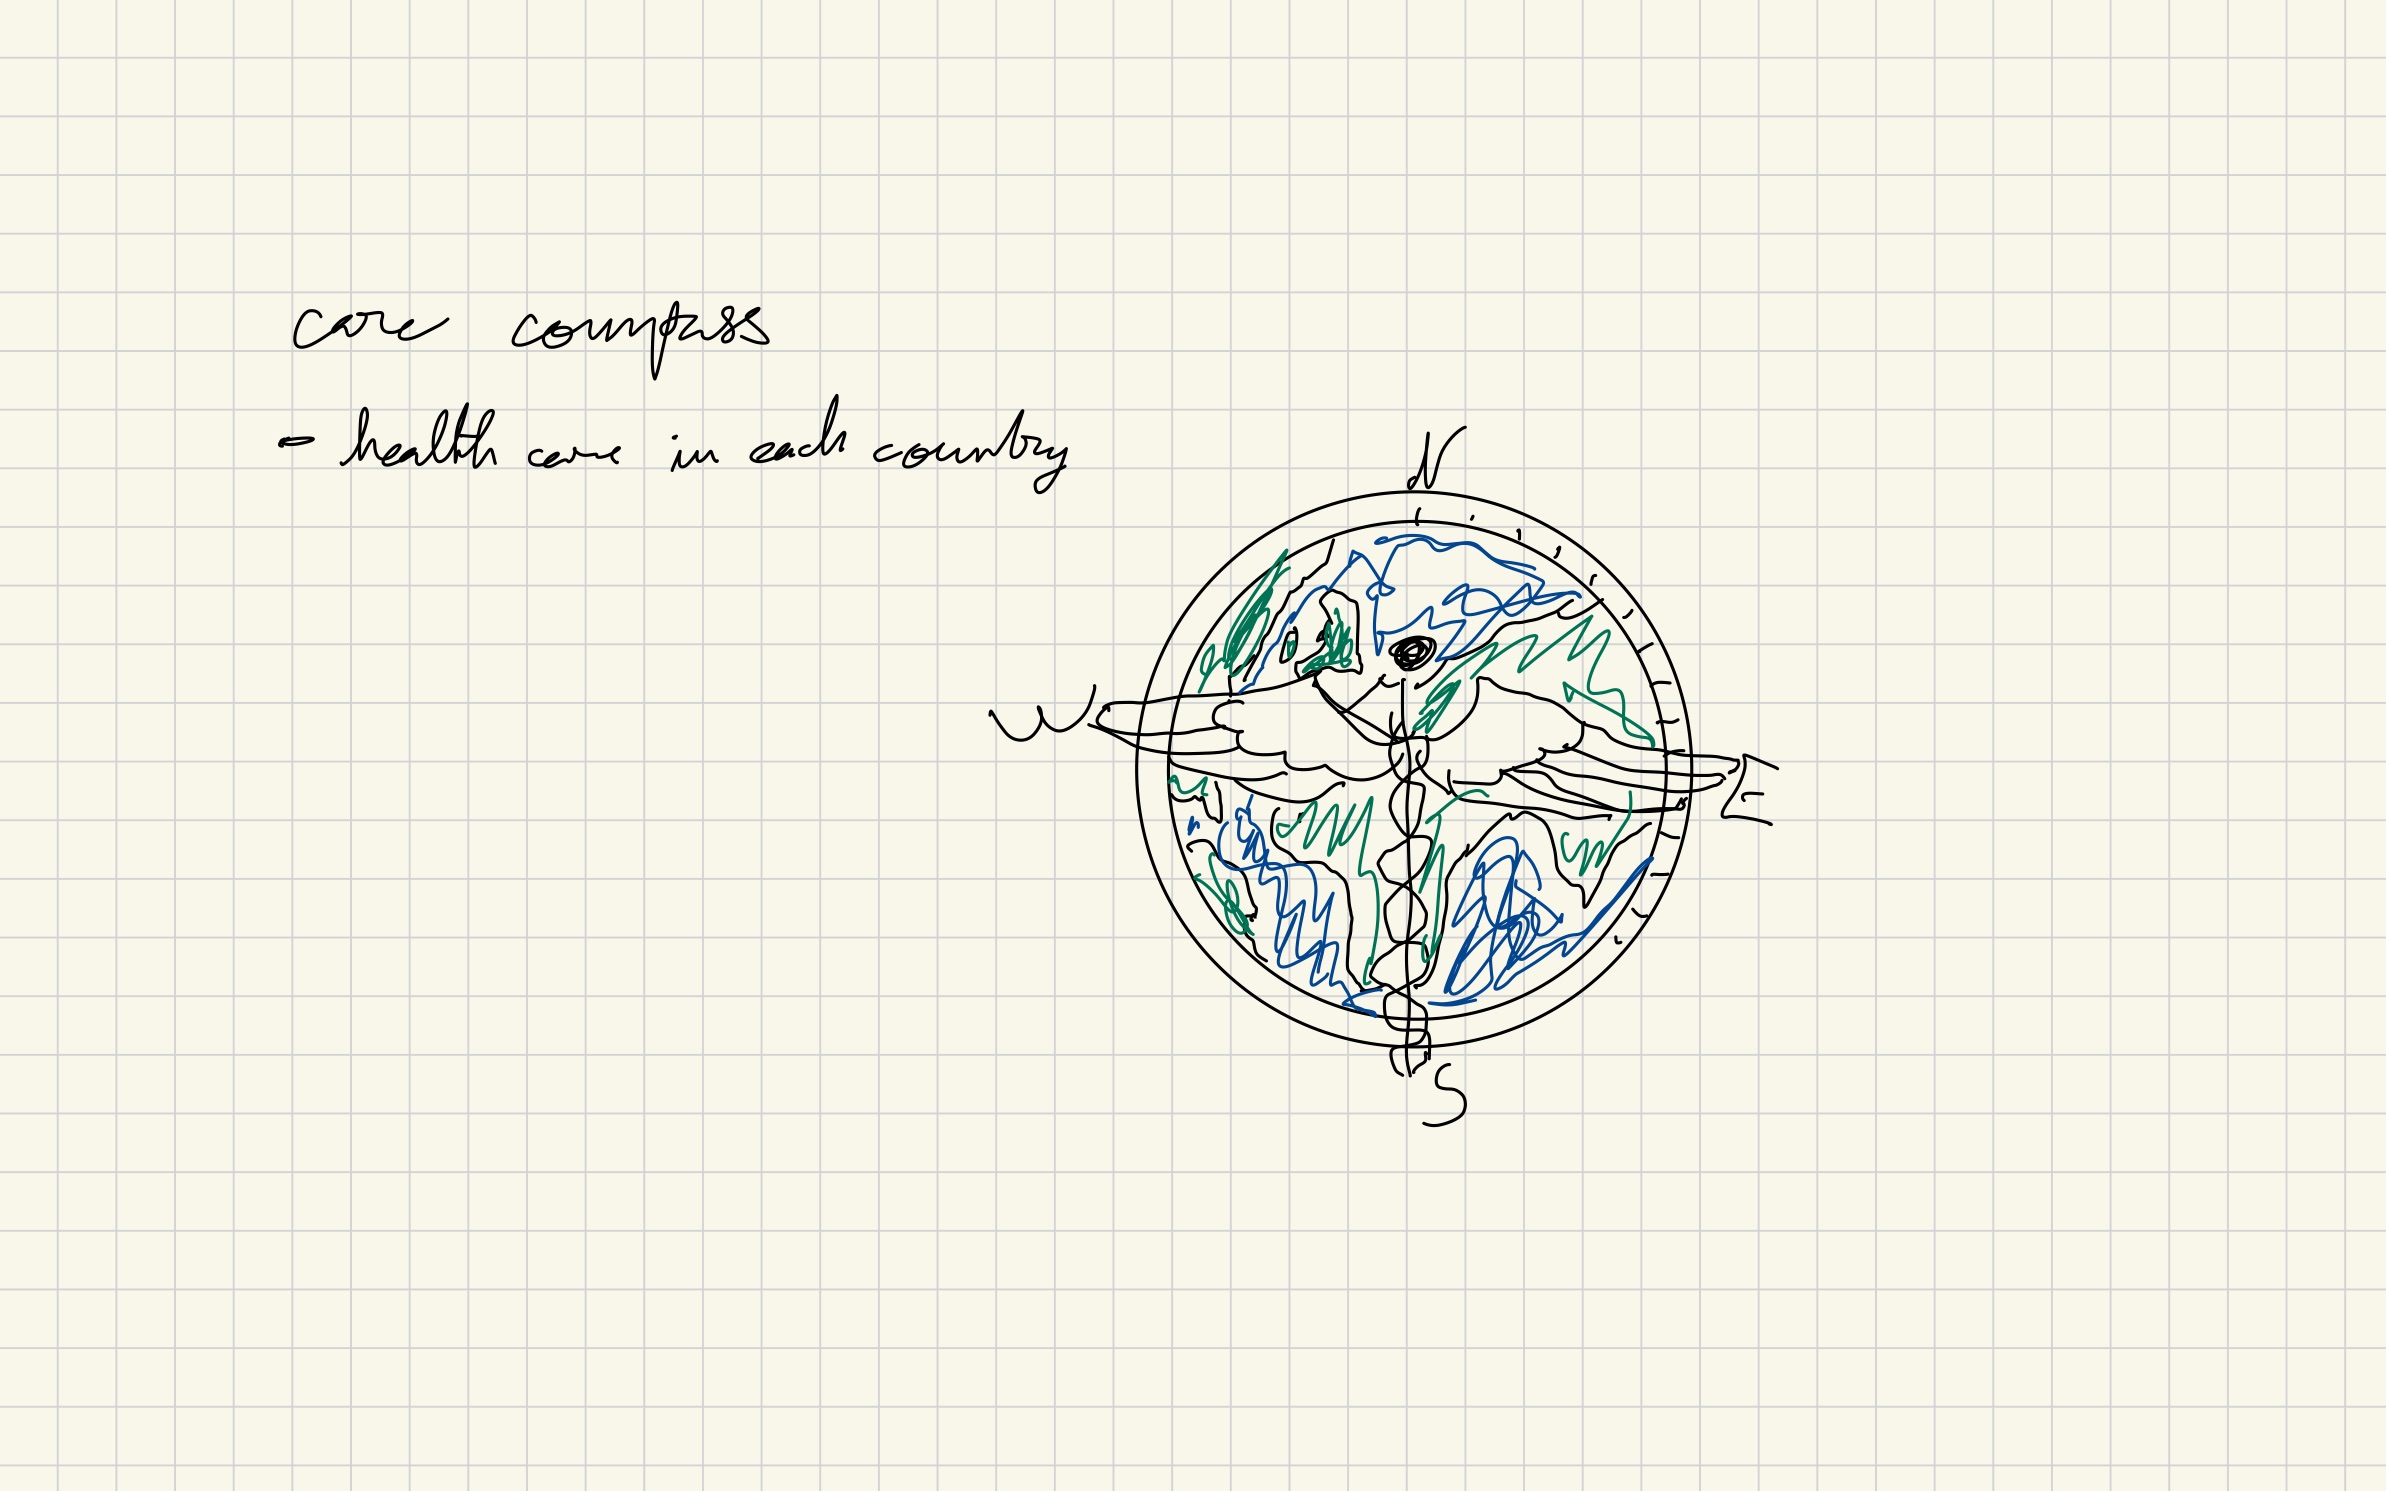 care compass
- health care in each country
N
W
E
S